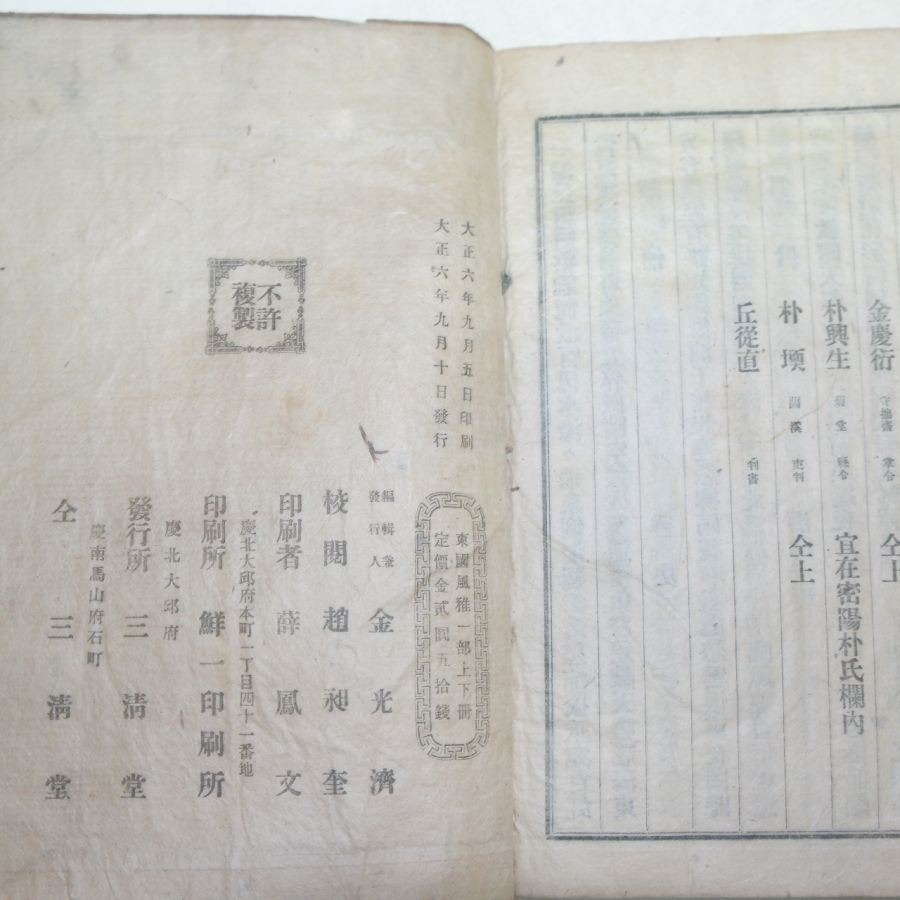 金慶衍 守拙齋 掌令 仝上
朴興生 菊堂 縣令 宜在密陽朴氏欄內
朴堧 蘭溪 吏判 仝上
丘從直 判書
東國風雅一部上下冊
定價金貳圓五拾錢
大正六年九月五日印刷
大正六年九月十日發行
不許
複製
編輯兼
發行人 金光濟
校閱 趙昶奎
印刷者 薛鳳文
慶北大邱府本町一丁目四十一番地
印刷所 鮮一印刷所
慶北大邱府
發行所 三淸堂
慶南馬山府石町
仝 三淸堂